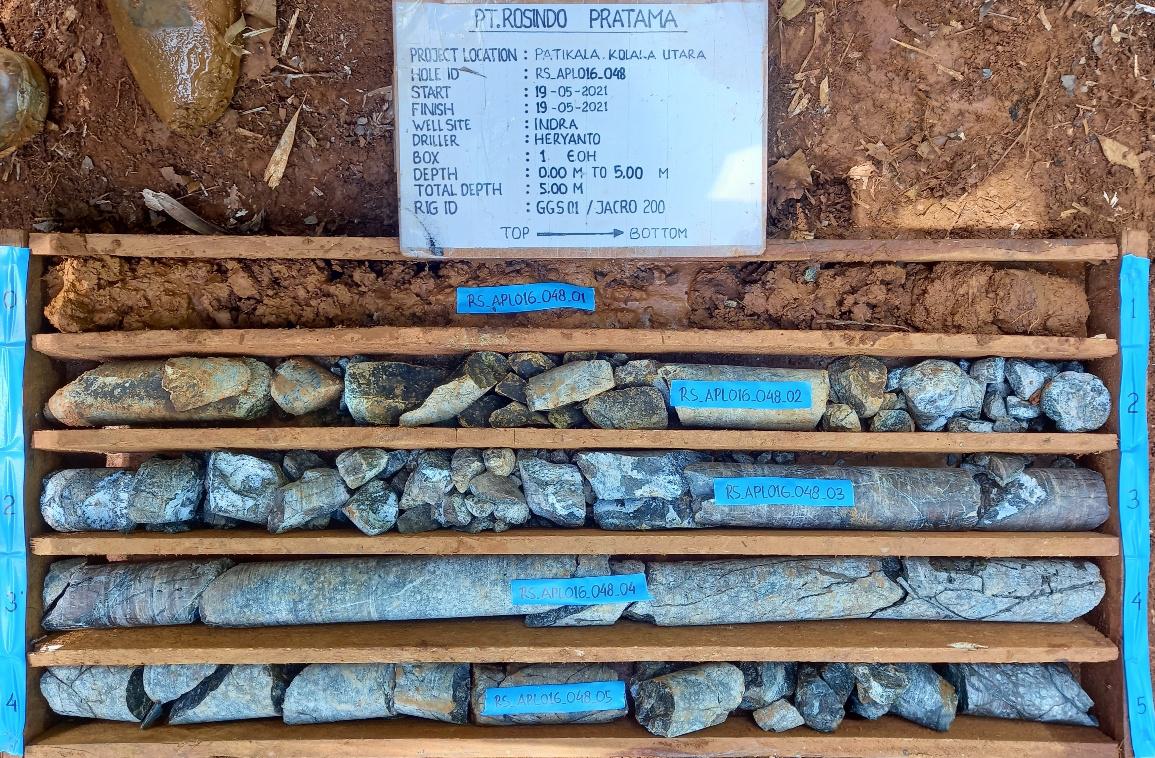 PT.ROSINDO PRATAMA
PROJECT LOCATION : PATIKALA. KOLALA UTARA
HOLE ID : RS_APL016_048
START : 19-05-2021
FINISH : 19-05-2021
WELLSITE : INDRA
DRILLER : HERYANTO
BOX : 1 EOH
DEPTH : 0.00 M TO 5.00 M
TOTAL DEPTH : 5.00 M
RIG ID : GGS01 / JACRO 200
TOP BOTTOM
0
RS_APL016_048_01
1
RS_APL016_048_02
2
2
RS_APL016_048_03
3
3
RS_APL016_048_04
4
4
RS_APL016_048_05
5